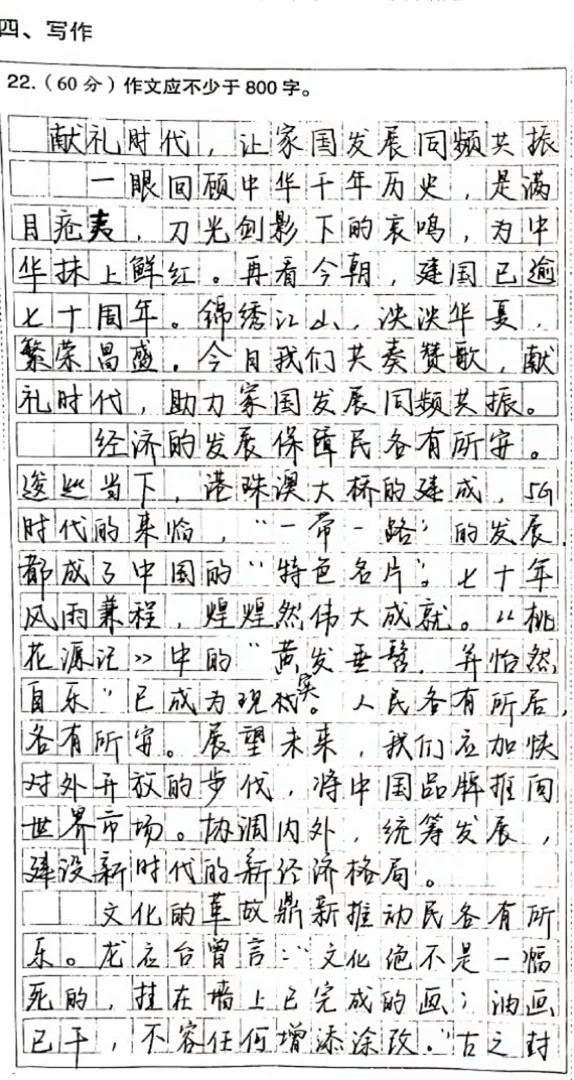 四、写作
22.（60分）作文应不少于800字。
献礼时代，让家国发展同频共振
一眼回顾中华千年历史，是满
目疮夷，刀光剑影下的哀鸣，为中
华抹上鲜红。再看今朝，建国已逾
七十周年。锦绣江山，泱泱华夏，
繁荣昌盛。今日我们共奏赞歌，献
礼时代，助力家国发展同频共振。
经济的发展保障民各有所安。
逡巡当下，港珠澳大桥的建成，5G
时代的来临，“一带一路”的发展，
都成了中国的“特色名片”。七十年
风雨兼程，煌煌然伟大成就。《桃
花源记》中的“黄发垂髫，并怡然
自乐”已成为现实。人民各有所居，
各有所安。展望未来，我们应加快
对外开放的步伐，将中国品牌推向
世界市场。协调内外，统筹发展，
建设新时代的新经济格局。
文化的革故鼎新推动民各有所
乐。龙应台曾言：“文化绝不是一幅
死的，挂在墙上已完成的画；油画
已干，不容任何增添涂改。”古之封